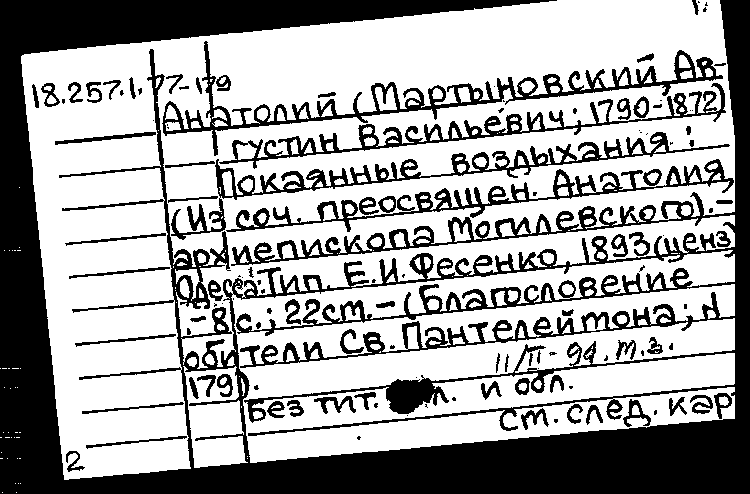 18.257.1.77-179
Анатолий (Мартыновский, Ав-
густин Васильевич; 1790-1872)
Покаянные воздыхания:
(Из соч. преосвящен. Анатолия,
архиепископа Могилевского).-
Одесса: Тип. Е.И. Фесенко, 1893 (ценз)
.-8 с.; 22 см.-(Благословение
обители Св. Пантелеймона; N
179).
11/II-94. т.з.
Без тит. л. и обл.
см. след. кар
2